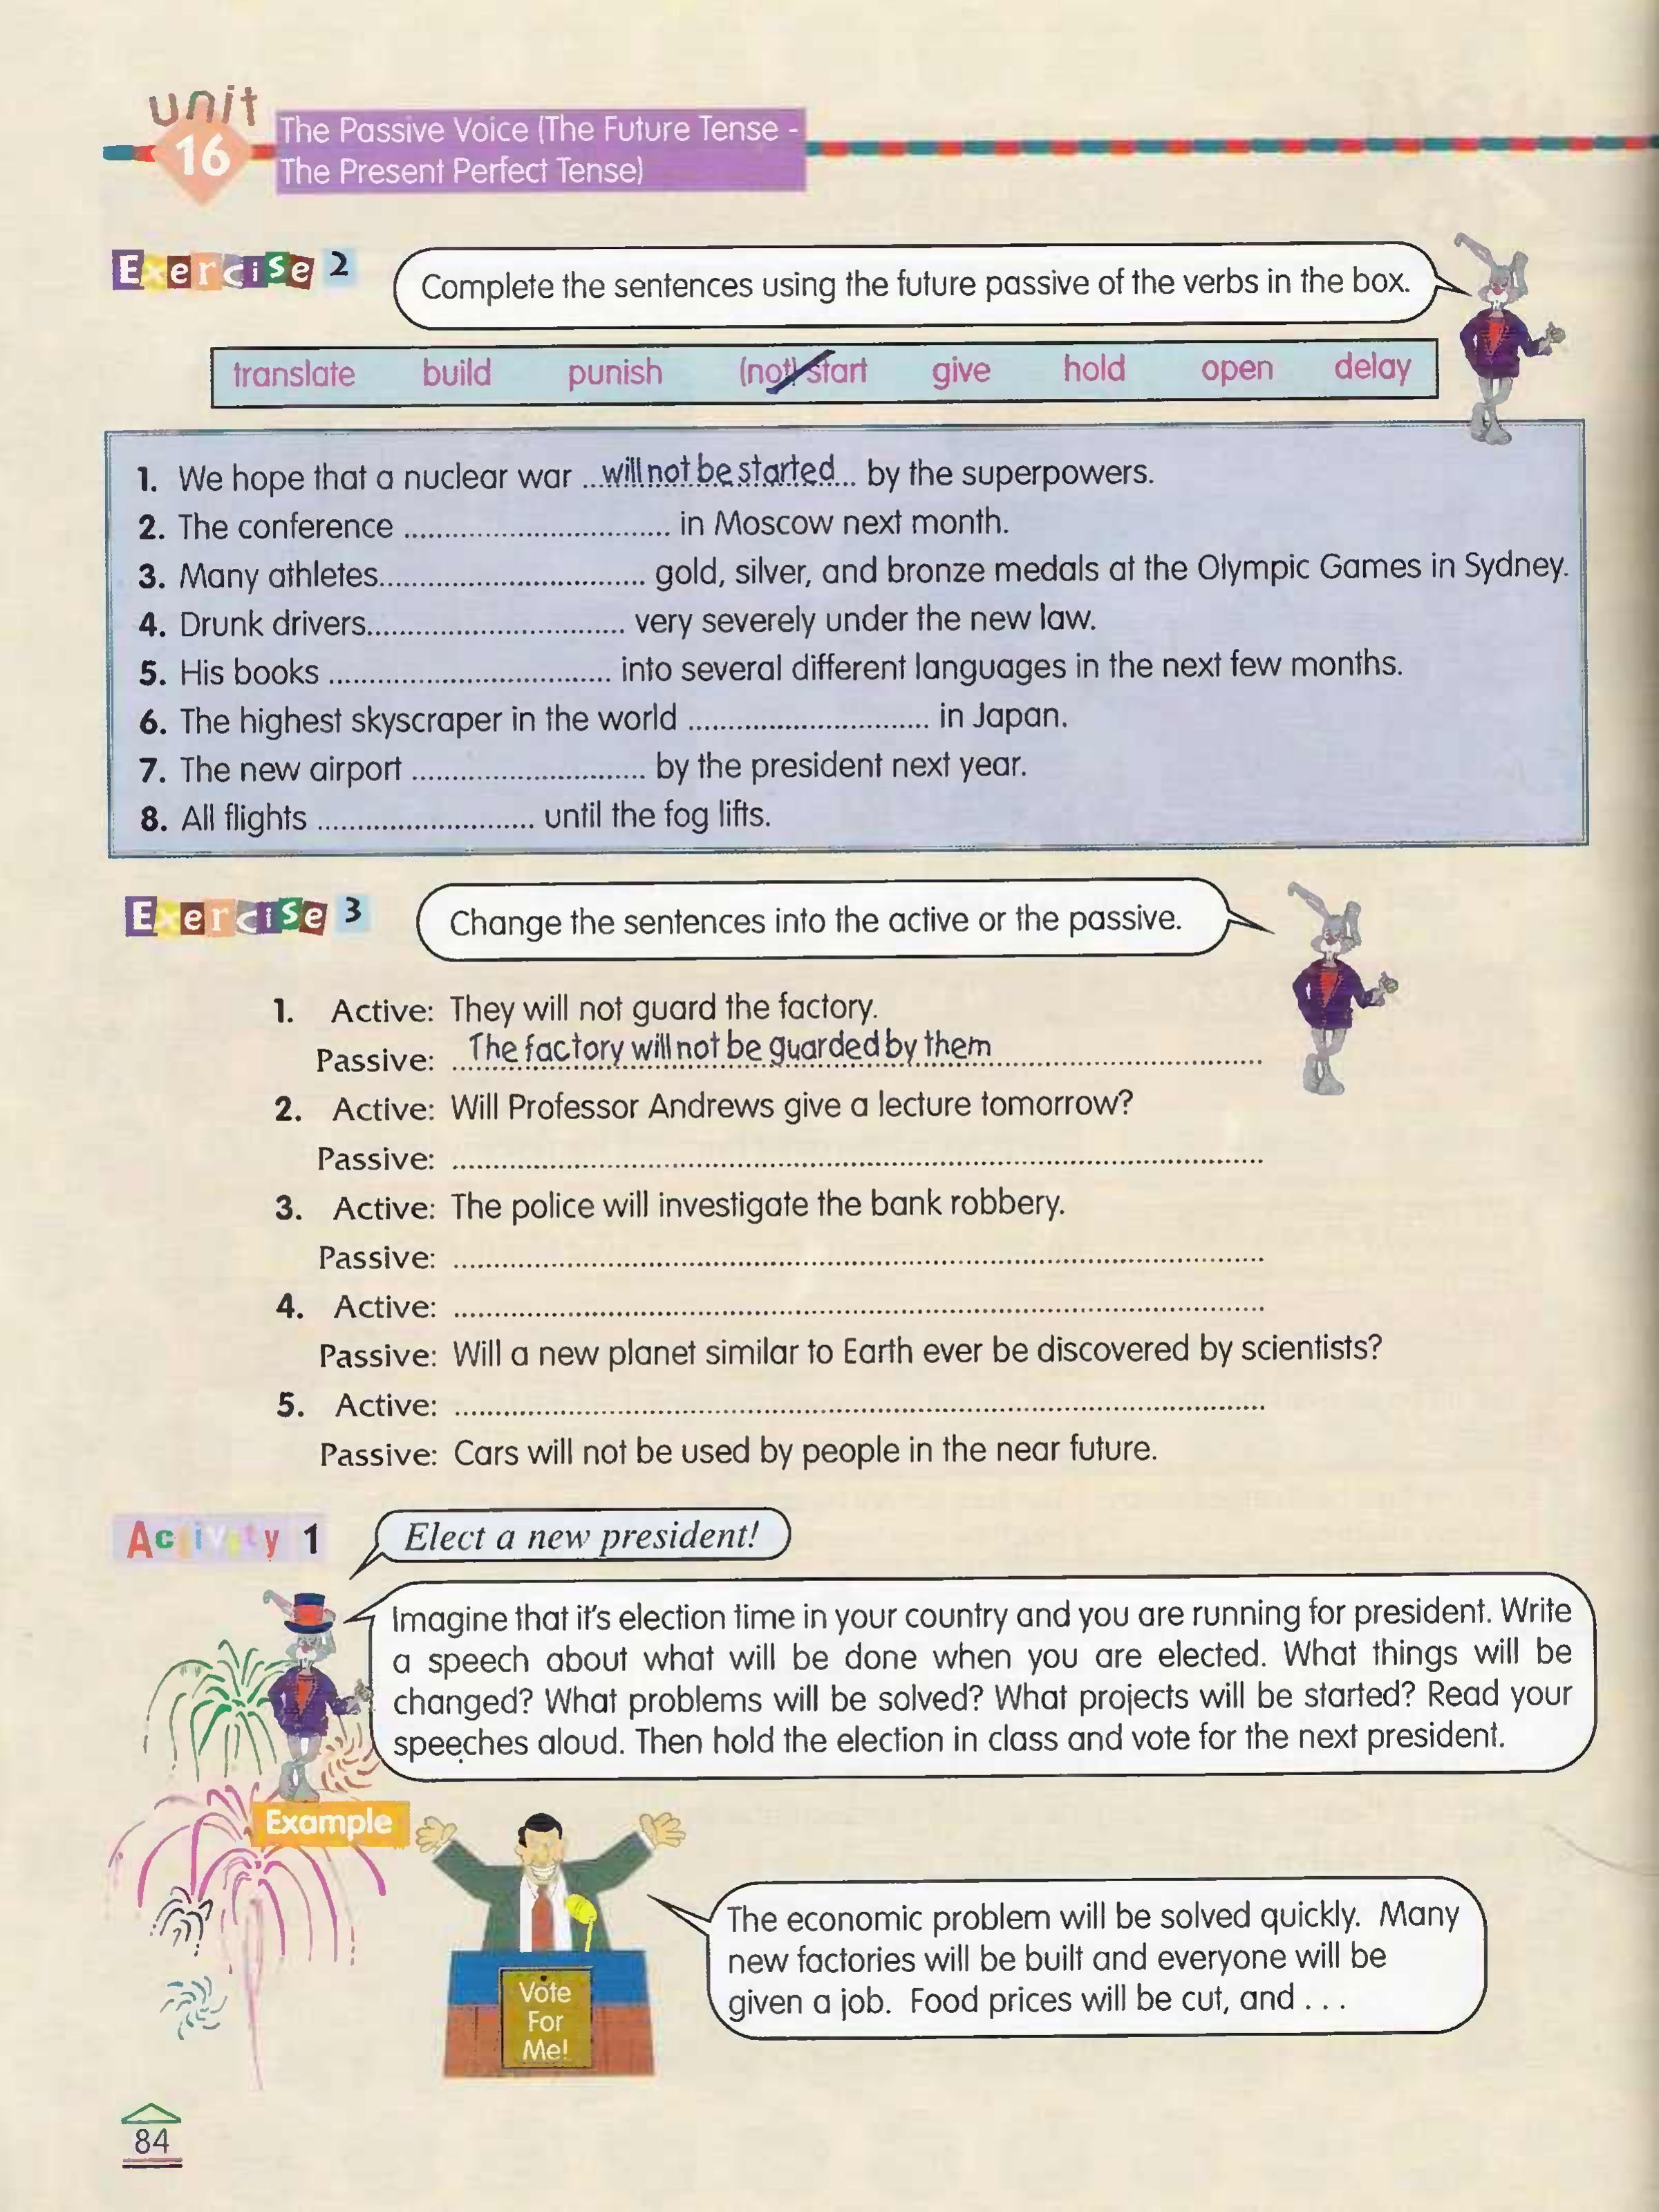 unit
16
The Passive Voice (The Future Tense -
The Present Perfect Tense)
Exercise 2
Complete the sentences using the future passive of the verbs in the box.
translate build punish (not) start give hold open delay
1. We hope that a nuclear war ...will not be started... by the superpowers.
2. The conference ................................. in Moscow next month.
3. Many athletes................................. gold, silver, and bronze medals at the Olympic Games in Sydney.
4. Drunk drivers................................ very severely under the new law.
5. His books ................................... into several different languages in the next few months.
6. The highest skyscraper in the world .............................. in Japan.
7. The new airport ............................. by the president next year.
8. All flights ........................... until the fog lifts.
Exercise 3
Change the sentences into the active or the passive.
1. Active: They will not guard the factory.
Passive: The factory will not be guarded by them ................................
2. Active: Will Professor Andrews give a lecture tomorrow?
Passive: ....................................................................................................
3. Active: The police will investigate the bank robbery.
Passive: ....................................................................................................
4. Active: ....................................................................................................
Passive: Will a new planet similar to Earth ever be discovered by scientists?
5. Active: ....................................................................................................
Passive: Cars will not be used by people in the near future.
Activity 1
Elect a new president!
Imagine that it's election time in your country and you are running for president. Write
a speech about what will be done when you are elected. What things will be
changed? What problems will be solved? What projects will be started? Read your
speeches aloud. Then hold the election in class and vote for the next president.
Example
The economic problem will be solved quickly. Many
new factories will be built and everyone will be
given a job. Food prices will be cut, and . . .
Vote
For
Me!
84